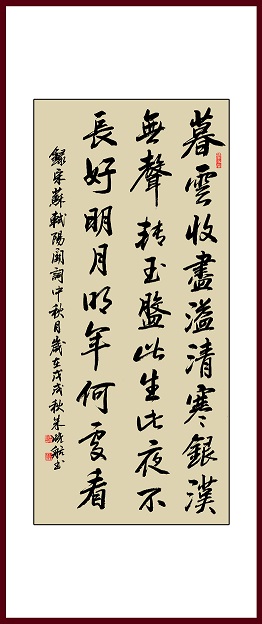 暮雲收盡溢清寒銀漢
無聲轉玉盤此生此夜不
長好明月明年何處看
錄宋蘇軾陽關詞中秋月歲在戊戌秋朱書